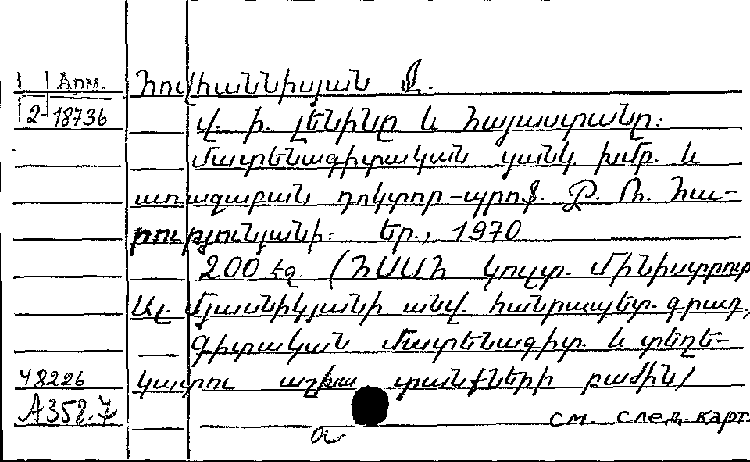 Арм. Հովհաննիսյան Ջ.
2-18736 Վ. Ի. Լենինը և Հայաստանը:
Մատենագիտական ցանկ խմբ. և
առաջաբան դոկտոր-պրոֆ. Հա-
րությունյանի: Եր., 1970
200 էջ. (ՀՍՍՀ կուլտ. մինիստրութ
Ալ. Մյասնիկյանի անվ. հանրապետ. գրադ.
Գիտական մատենագիտ. և տեղե-
48226 կատու աշխատանքների բաժին)
A358.7 см. след. карт.
a